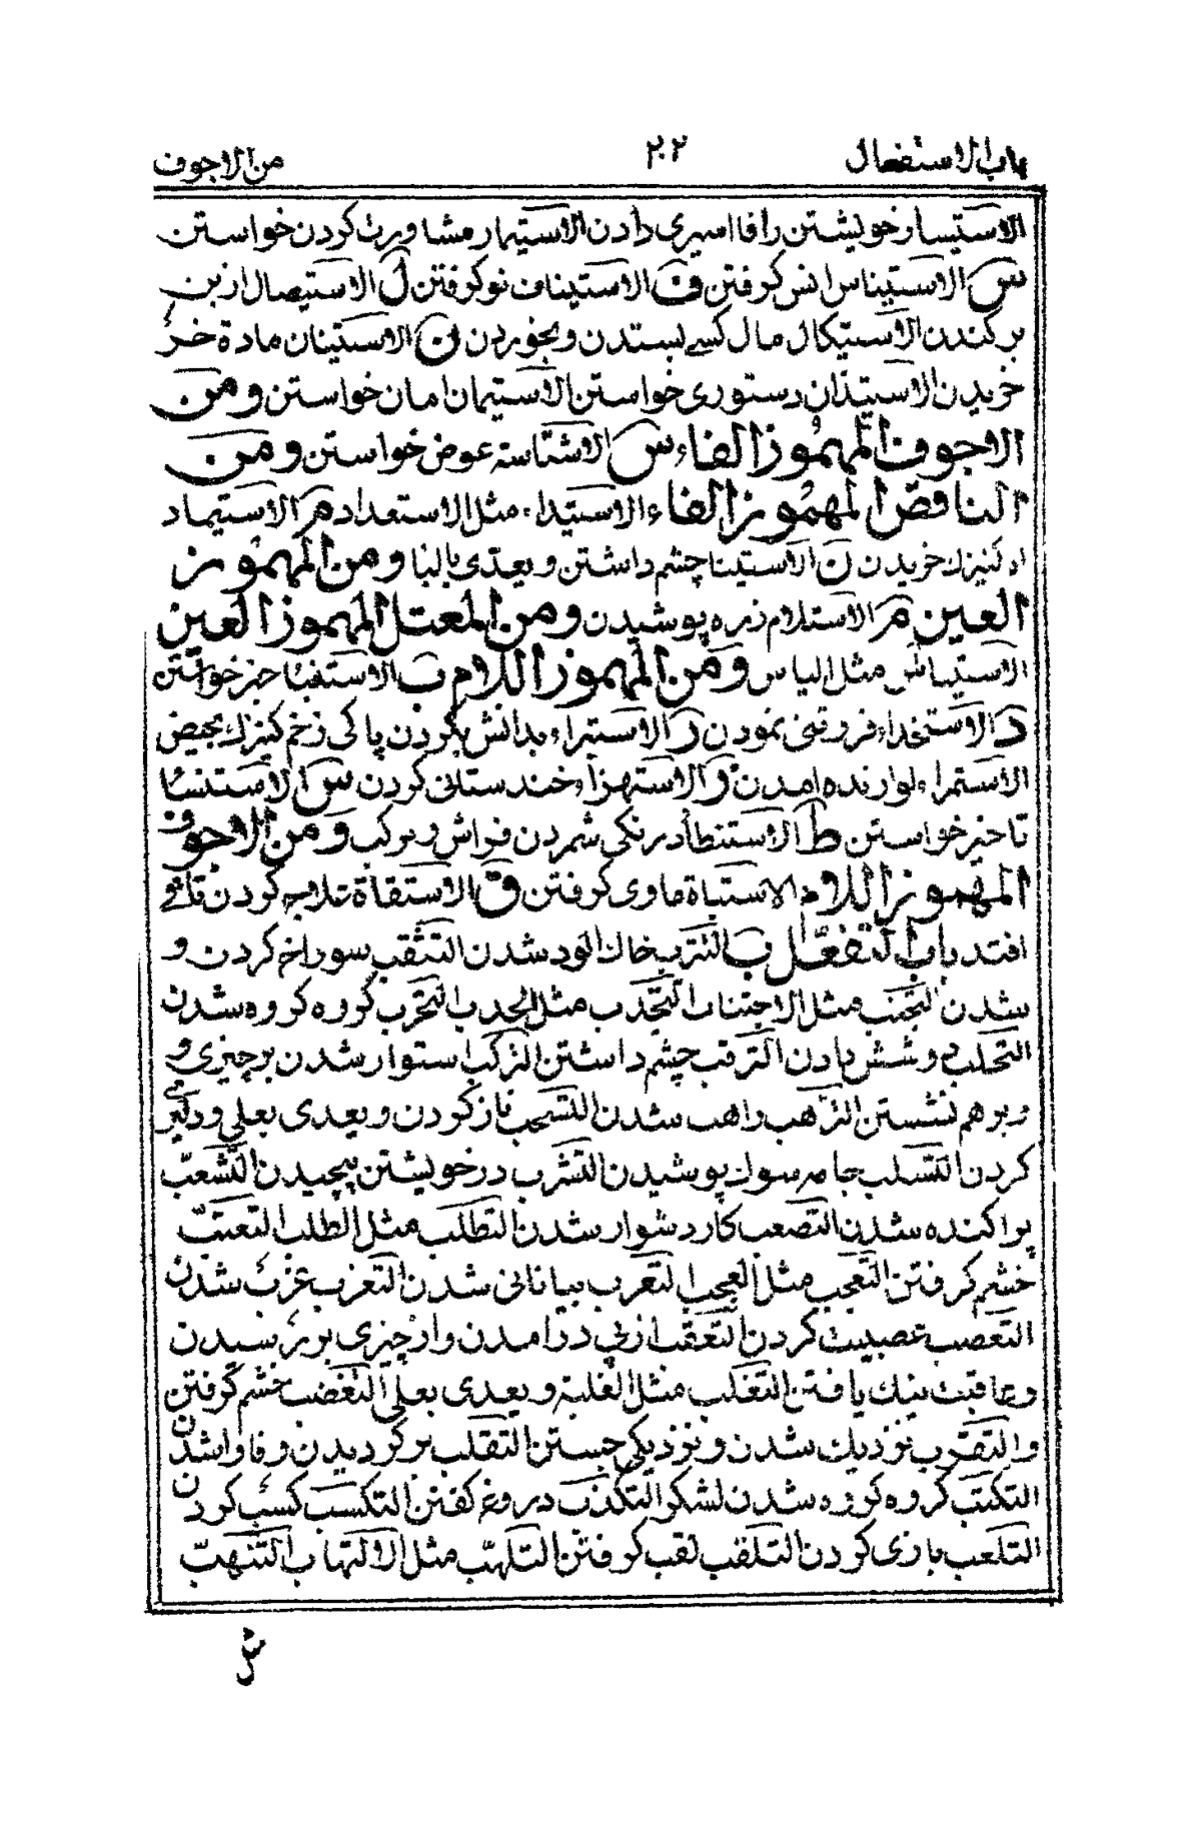 باب الاستفعال ۲۰۲ من الاجوف
الاستیسار خویشتن را فا اسیری دادن الاستیمار مشاورت کردن خواستن
س الاستیناس انس گرفتن ف الاستیناف نو گرفتن ل الاستیصال از بن
بر کندن الاستیکال مال کسے بستدن و بخوردن ن الاستینان مادة خر
خریدن الاستیذان دستوری خواستن الاستیمان امان خواستن ومن
الاجوف المهموز الفاء س الاستاسة عوض خواستن ومن
الناقص المهموز الفاء الاستیداء مثل الاستعداد م الاستیماد
کنیزك خریدن ن الاستینا چشم داشتن و یعدی بالبا ومن المهموز
العین م الاستلام زره پوشیدن ومن المعتل المهموز العین
الاستیباس مثل الیاس ومن المهموز اللام ب الاستنبا خبر خواستن
د الاستخداء فروتنی نمودن ر الاستبراء بدانش کردن پاکی زخم کنیزك بحیض
الاستمراء لوارنده امدن ز الاستهزاء خندستانی کردن س الاستنسا
تاخیر خواستن ط الاستبطا درنکی شمردن فراش و برکب ومن الاجوف
المهموز اللام الاستباة ماوی گرفتن ق الاستقاة تلاب کردن تا قے
افتد باب التفعّل ب التترب خاك الود شدن التثقب سوراخ کردن و
شدن التجنب مثل الاجتناب التجذب مثل الجدب التحزب گروه گروه شدن
التحلب دوشش دادن الترقب چشم داشتن الترکب استوار شدن بر چیزی و
و بر هم نشستن الترهب راهب شدن التسحب ناز کردن و یعدی بعلی و دلیری
کردن التسلب جامه سوك پوشیدن التشرب در خویشتن پیچیدن التشعّب
پراکنده شدن التصعب کار دشوار شدن التطلب مثل الطلب التعتّب
خشم گرفتن التعجب مثل العجب التعرب بیابانی شدن التعزب عزب شدن
التعصب عصبیت کردن التعقب از پی در امدن و از چیزی بررسیدن
و عاقبت نیك یافتن التغلب مثل الغلبة و یعدی بعلی التغضب خشم گرفتن
و التقرب نزدیك شدن و نزدیکی جستن التقلب بر گردیدن و فاوا شدن
التکتب گروه گروه شدن لشکر التکذب دروغ گفتن التکسب کسب کردن
التلعب بازی کردن التلقب لقب گرفتن التلهّب مثل الالتهاب التنهّب